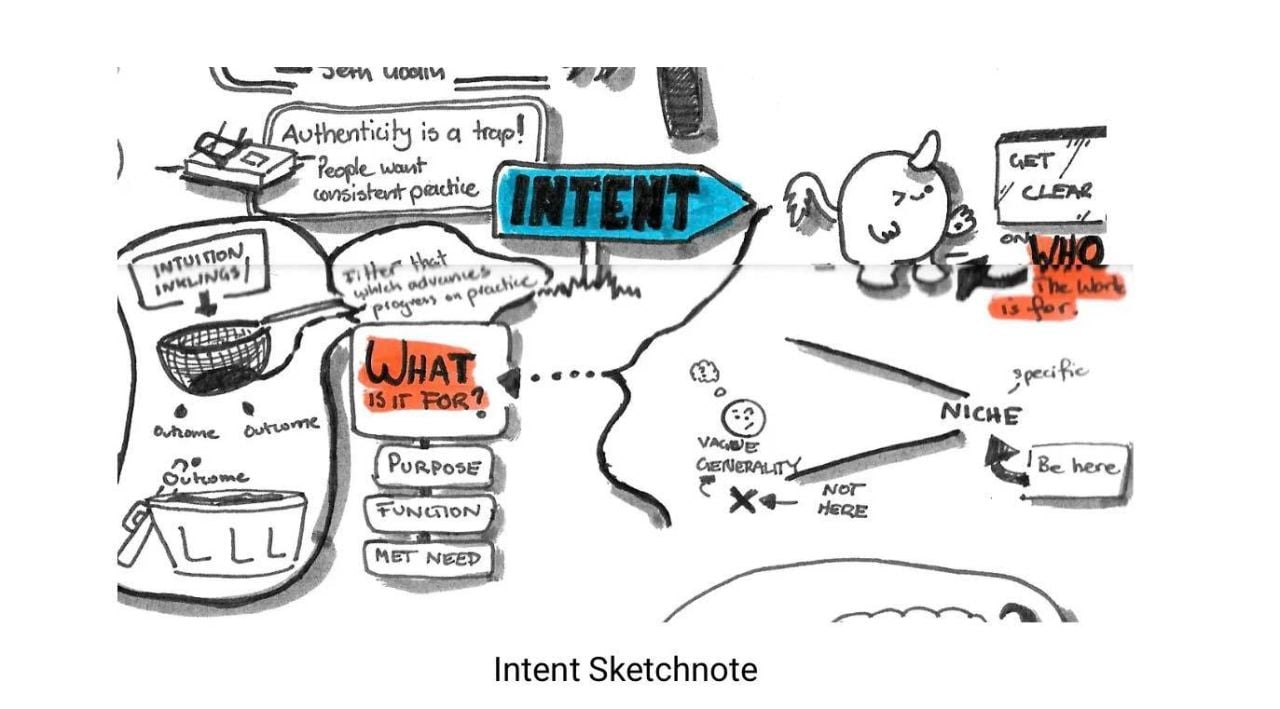 Seth Godin
Authenticity is a trap!
People want
consistent practice
INTENT
INTUITION
INKLINGS
Filter that
which advances
progress on practice
WHAT
IS IT FOR?
PURPOSE
FUNCTION
MET NEED
Outcome
Outcome
Outcome
GET
CLEAR
ON
WHO
The Work
is for.
specific
NICHE
Be here
VAGUE
GENERALITY
NOT
HERE
Intent Sketchnote